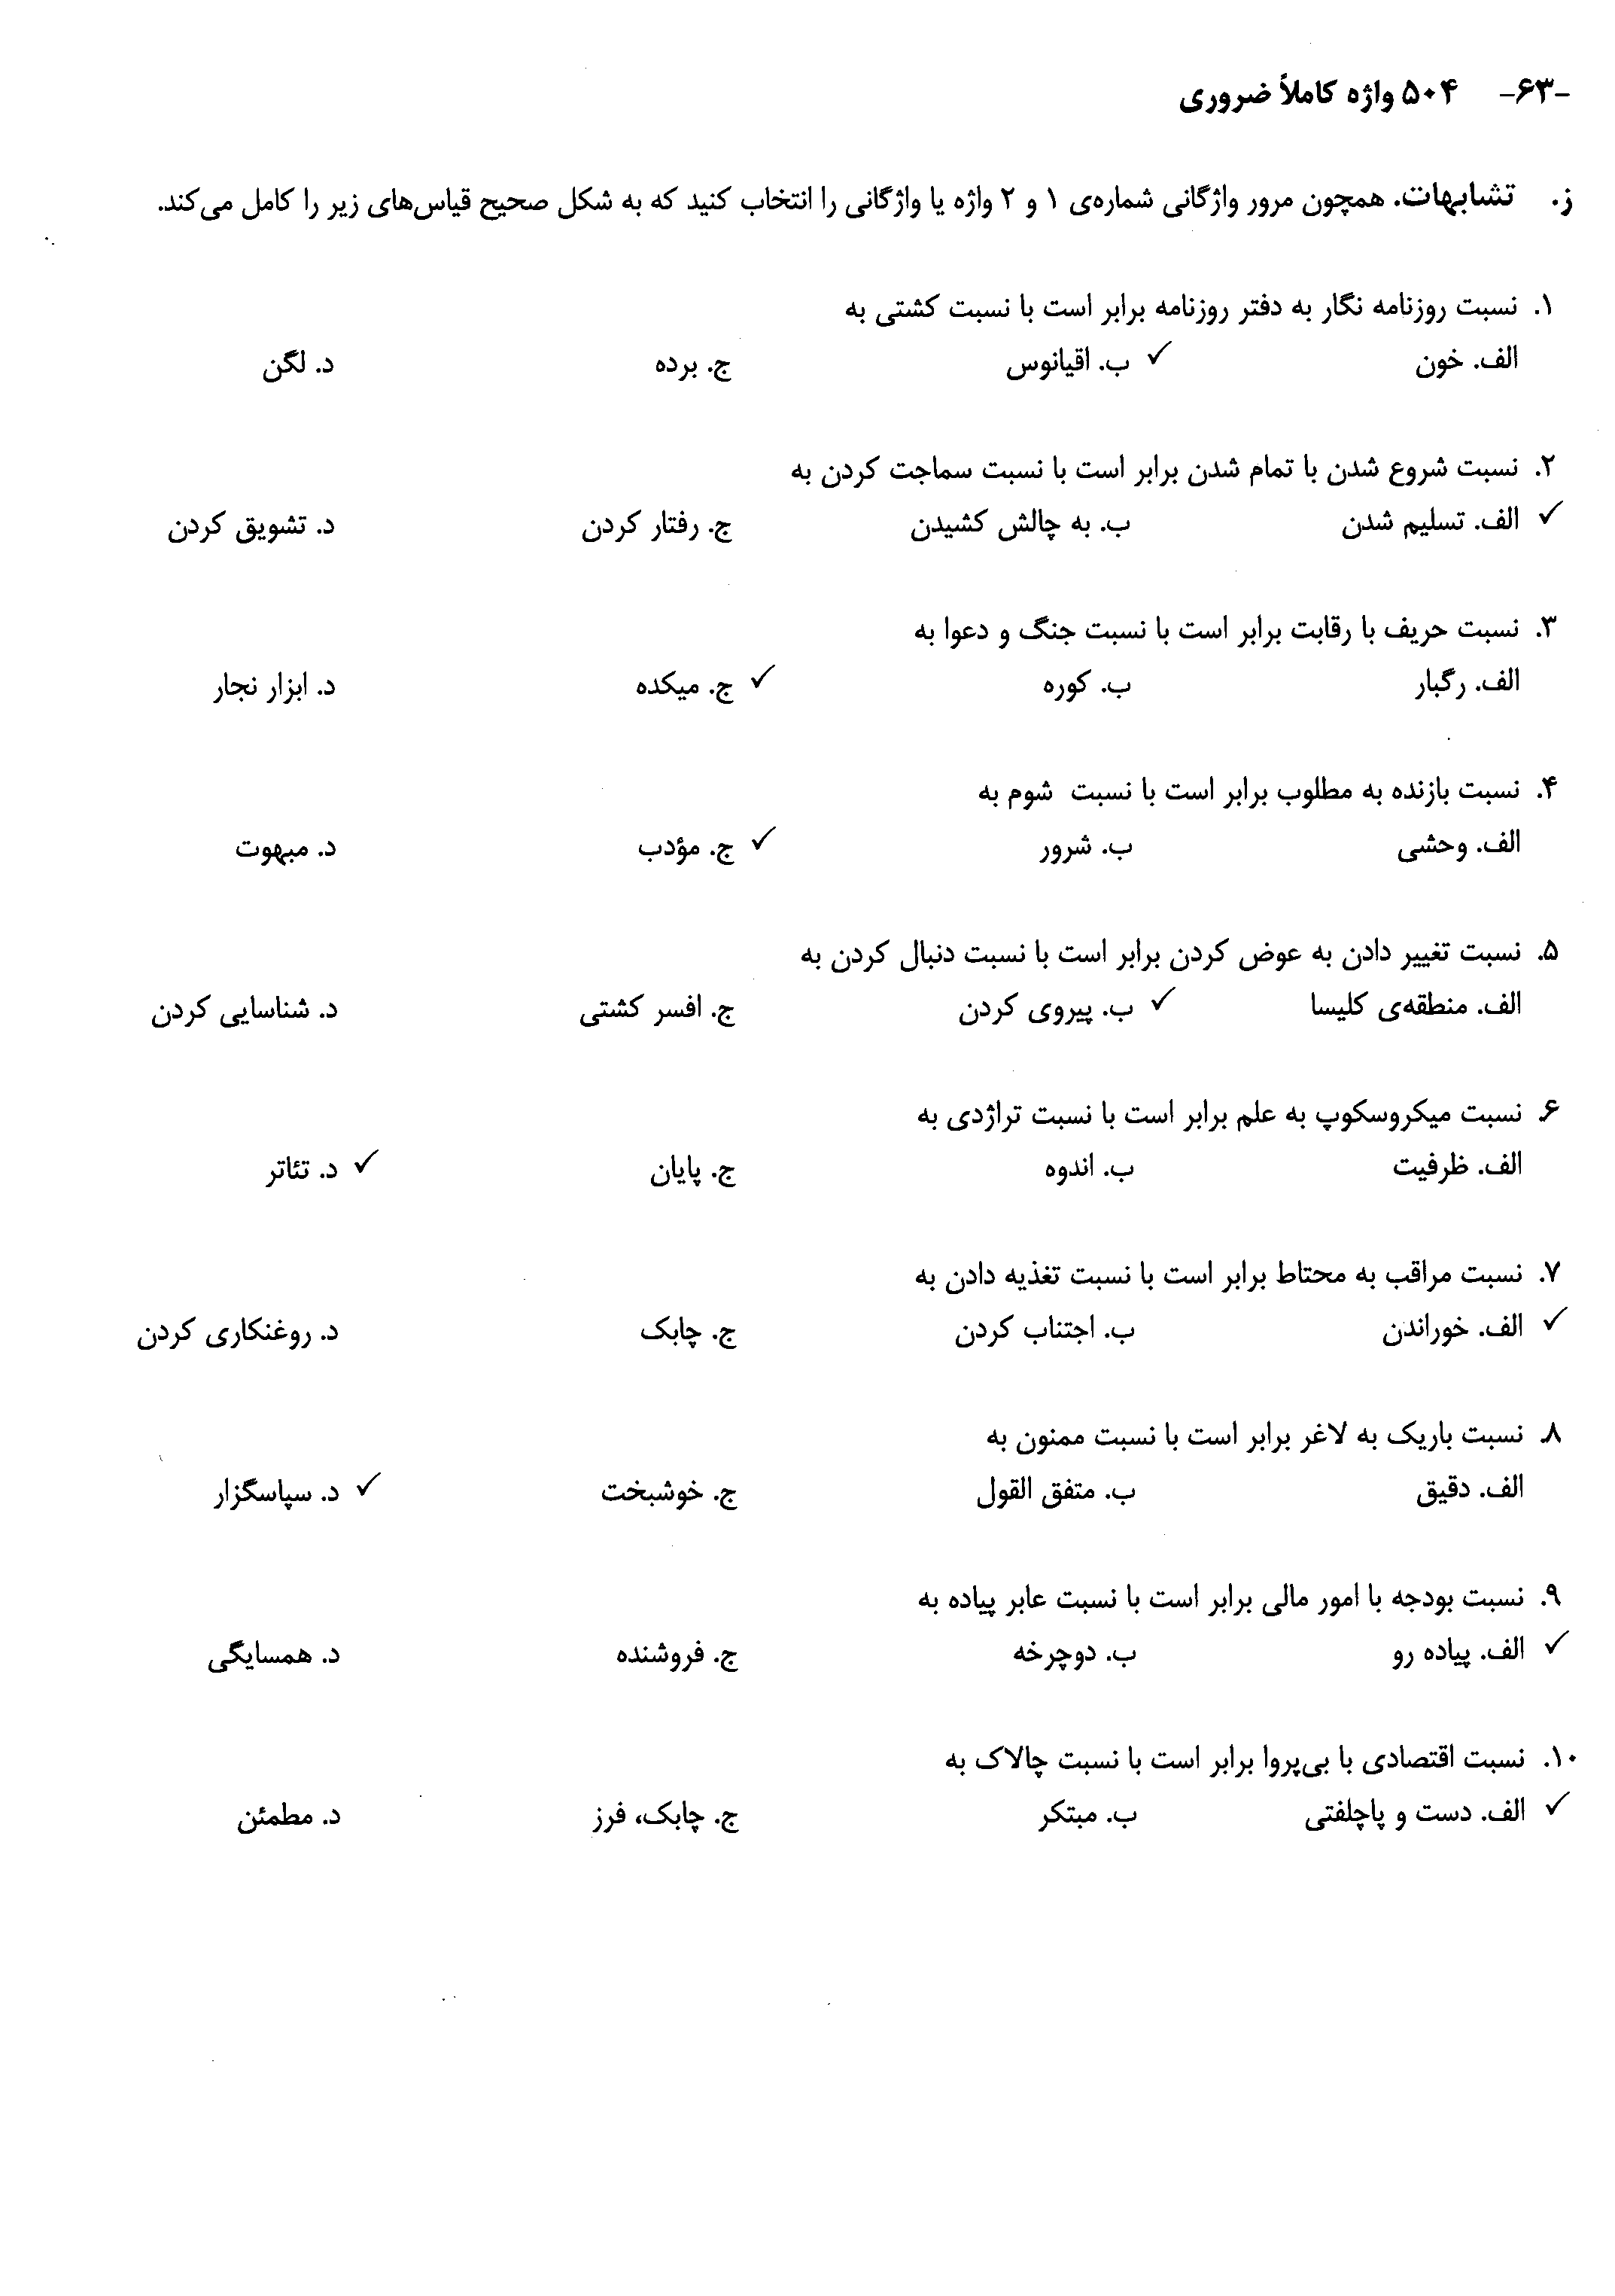 -۶۳- ۵۰۴ واژه کاملاً ضروری
ز. تشابهات. همچون مرور واژگانی شماره‌ی ۱ و ۲ واژه یا واژگانی را انتخاب کنید که به شکل صحیح قیاس‌های زیر را کامل می‌کند.
۱. نسبت روزنامه نگار به دفتر روزنامه برابر است با نسبت کشتی به
الف. خون ✓ ب. اقیانوس ج. برده د. لگن
۲. نسبت شروع شدن با تمام شدن برابر است با نسبت سماجت کردن به
✓ الف. تسلیم شدن ب. به چالش کشیدن ج. رفتار کردن د. تشویق کردن
۳. نسبت حریف با رقابت برابر است با نسبت جنگ و دعوا به
الف. رگبار ب. کوره ✓ ج. میکده د. ابزار نجار
۴. نسبت بازنده به مطلوب برابر است با نسبت شوم به
الف. وحشی ب. شرور ✓ ج. مؤدب د. مبهوت
۵. نسبت تغییر دادن به عوض کردن برابر است با نسبت دنبال کردن به
الف. منطقه‌ی کلیسا ✓ ب. پیروی کردن ج. افسر کشتی د. شناسایی کردن
۶. نسبت میکروسکوپ به علم برابر است با نسبت تراژدی به
الف. ظرفیت ب. اندوه ج. پایان ✓ د. تئاتر
۷. نسبت مراقب به محتاط برابر است با نسبت تغذیه دادن به
✓ الف. خوراندن ب. اجتناب کردن ج. چابک د. روغنکاری کردن
۸. نسبت باریک به لاغر برابر است با نسبت ممنون به
الف. دقیق ب. متفق القول ج. خوشبخت ✓ د. سپاسگزار
۹. نسبت بودجه با امور مالی برابر است با نسبت عابر پیاده به
✓ الف. پیاده رو ب. دوچرخه ج. فروشنده د. همسایگی
۱۰. نسبت اقتصادی با بی‌پروا برابر است با نسبت چالاک به
✓ الف. دست و پاچلفتی ب. مبتکر ج. چابک، فرز د. مطمئن